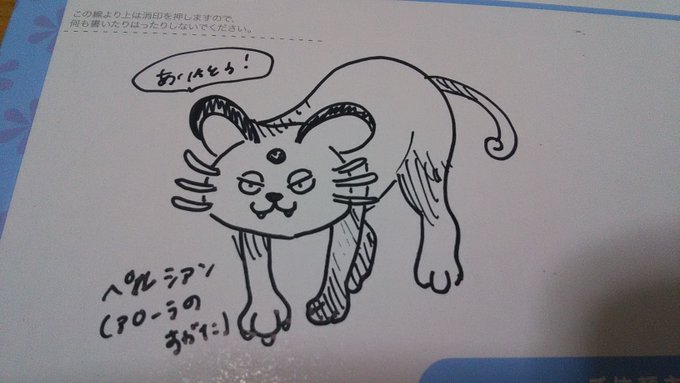 この線より上は消印を押しますので、
何も書いたりはったりしないでください。
ペルシアン
(アローラの
すがた)